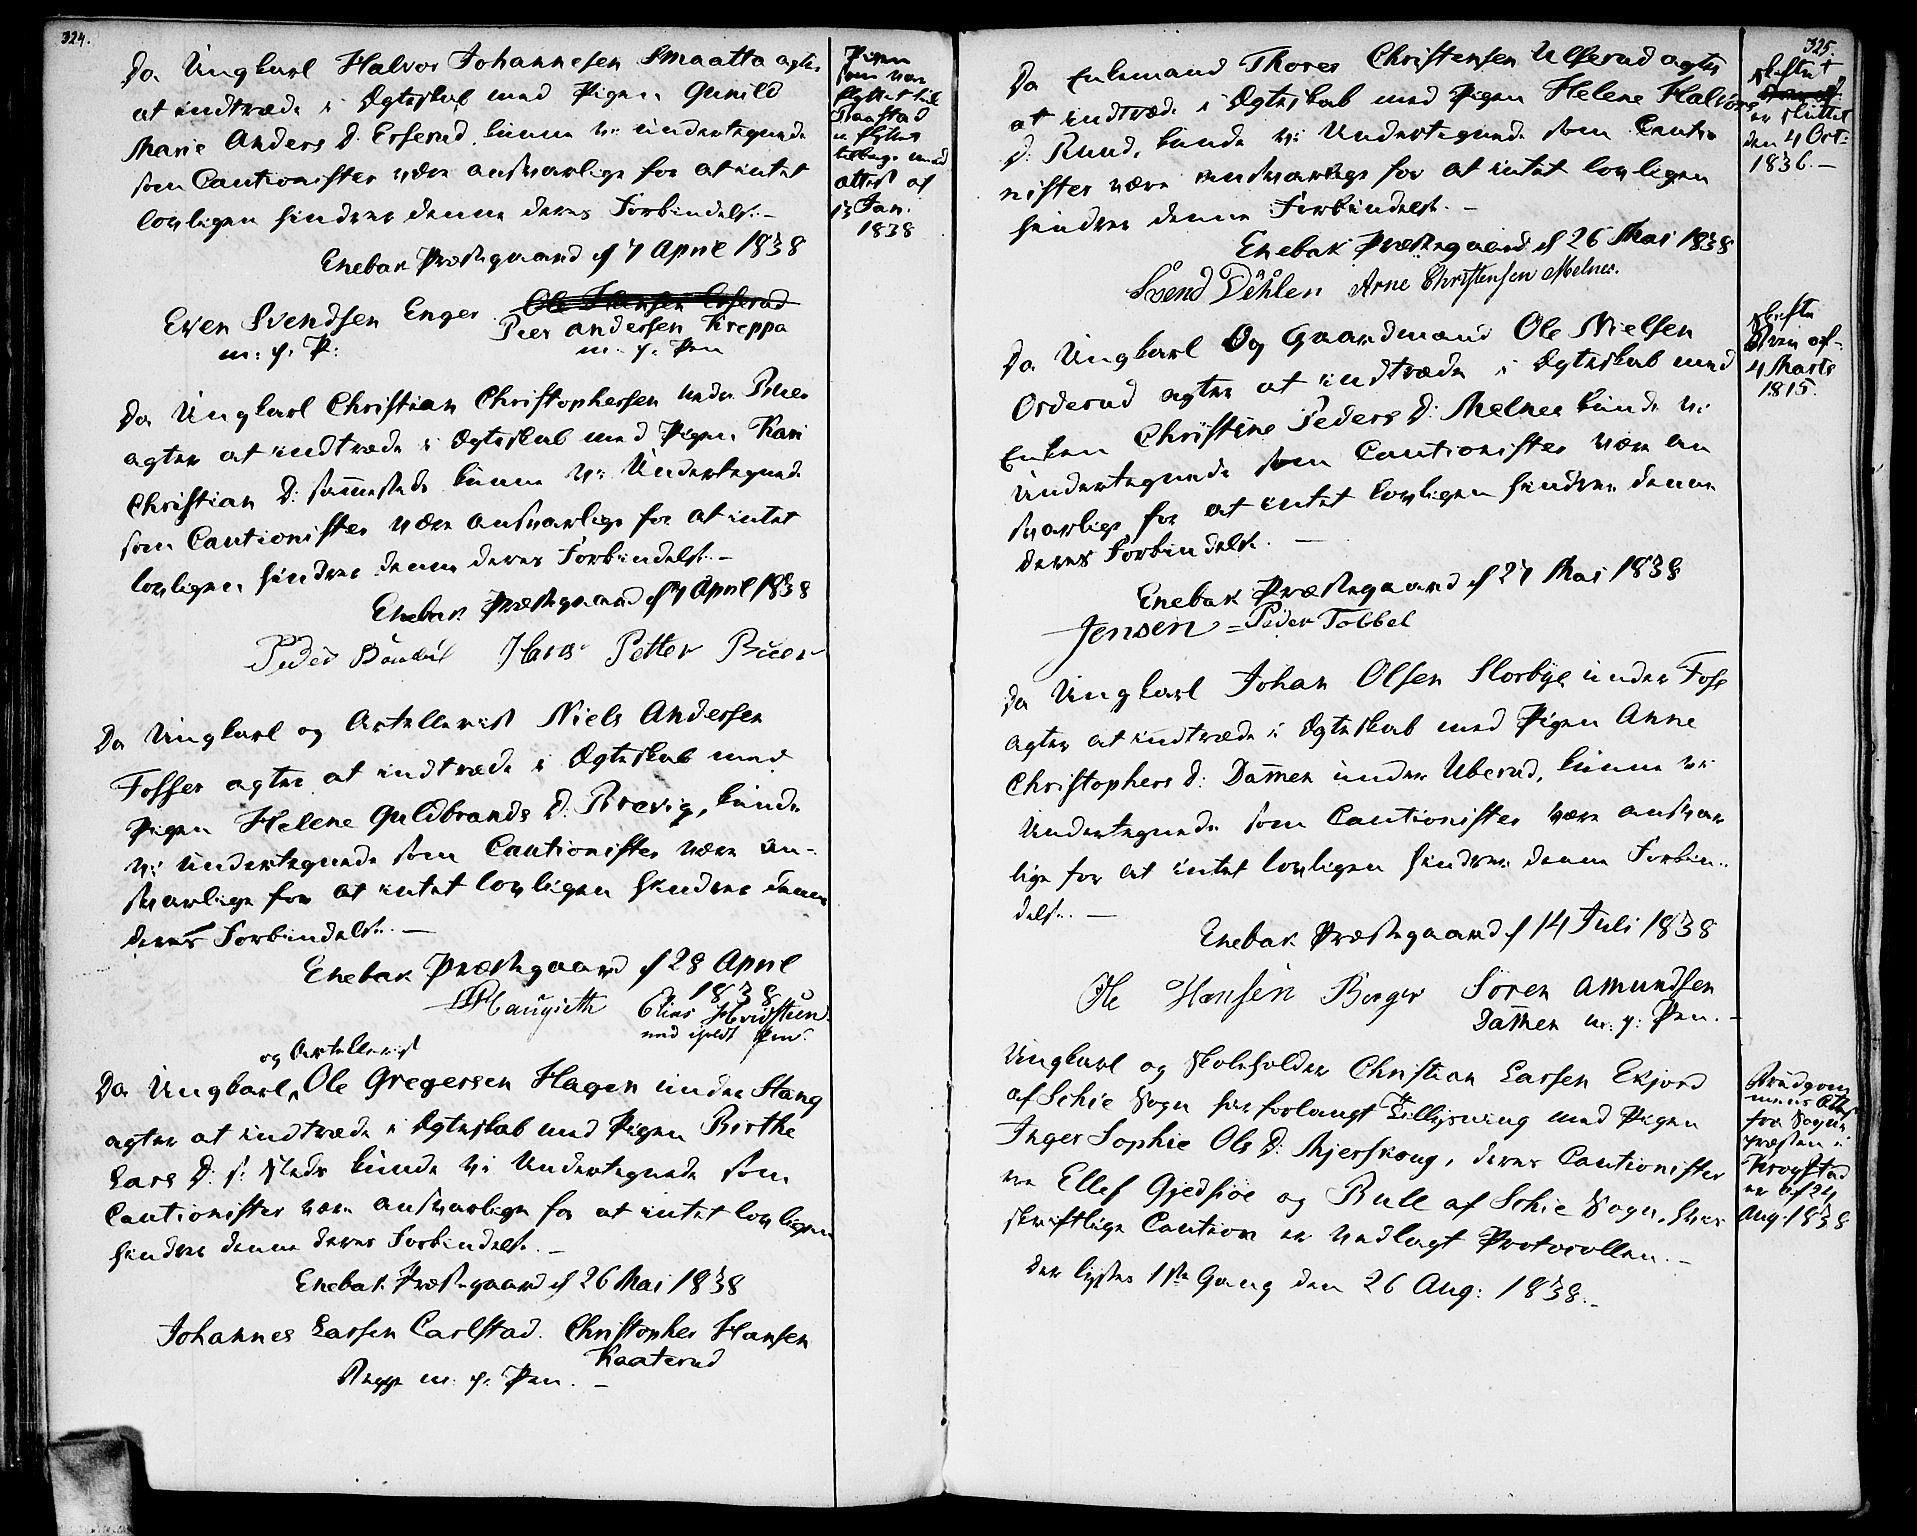 324.
Da Ungkarl Halvor Johannesen Smaatta agter
at indtræde i Ægteskab med Pigen Gunild
Marie Anders D. Erserud kunne vi undertegnede
som Cautionister være ansvarlige for at intet
lovligen hindrer denne deres Forbindelse.-
Enebak Præstegaard d 7 April 1838
Even Svendsen Enger Ole Hansen Erserud
Peer Andersen Kreppa
m: f. P: m. f. Pen
Pigen
som var
flyttet til
er flyttet
tilbage med
attest af
13 Jan.
1838
Da Ungkarl Christian Christophersen under Buer
agter at indtræde i Ægteskab med Pigen Kari
Christian D: sammesteds kunne vi Undertegnede
som Cautionister være ansvarlige for at intet
lovligen hindrer denne deres Forbindelse.-
Enebak Præstegaard d 7 April 1838
Peder Hans Petter Buer
Da Ungkarl og Artellerist Niels Andersen
Fosser agter at indtræde i Ægteskab med
Pigen Helene Guldbrands D: Brevig, kunde
vi undertegnede som Cautionister være an-
svarlige for at intet lovligen hindrer denne
deres Forbindelse.-
Enebak Præstegaard d 28 April
1838
Haugseth Elias
med iholdt Pen
og Artellerist
Da Ungkarl, Ole Gregersen Hagen under Stang
agter at indtræde i Ægteskab med Pigen Birthe
Lars D: s: Steds kunde vi Undertegnede som
Cautionister være ansvarlige for at intet lovligen
hindrer denne deres Forbindelse.-
Enebak Præstegaard d 26 Mai 1838
Johannes Larsen Carlstad. Christopher Hansen
Kaaterud
Begge m. f. Pen.-
325.
Da Enkemand Thores Christensen Ulserud agter
at indtræde i Ægteskab med Pigen Helene Halvors
d: Ruud, kunde vi Undertegnede som Cautio
nister være ansvarlige for at intet lovligen
hindrer denne Forbindelse.-
Enebak Præstegaard d 26 Mai 1838
Svend Dæhlen Arne Christensen Melnes.
Skiftet
er sluttet
den 4 Oct:
1836.-
Da Ungkarl Og Gaardmand Ole Nielsen
Orderud agter at indtræde i Ægteskab med
Enken Christine Peders D: Melnes kunde vi
Undertegnede som Cautionister være an
svarlige for at intet lovligen hindrer denne
deres Forbindelse.-
Enebak Præstegaard d 27 Mai 1838
Jensen = Peder Tobbel
Skifte
Brev af
4 Marts
1815.
Da Ungkarl Johan Olsen Slorbye under Foss
agter at indtræde i Ægteskab med Pigen Anne
Christophers d: Dammen under Uberud, kunne vi
Undertegnede som Cautionister være ansvar
lige for at intet lovligen hindrer denne Forbin-
delse.-
Enebak Præstegaard d 14 Juli 1838
Ole Hansen Borger Sören Amundsen
Dammen m: f: Pen.-
Ungkarl og Skoleholder Christian Larsen Ekjord
af Schie Sogn har forlangt Tillysning med Pigen
Inger Sophie Ols D: Mjerskoug, deres Cautionister
ere Ellef Gjedsiøe og Bull af Schie Sogn, hvis
skriftlige Caution er vedlagt Protocollen.-
Der lystes 1ste Gang den 26 Aug: 1838.-
Brudgom
mens Attest
fra Sogne
præsten i
Krogstad
er af 24
Aug: 1838